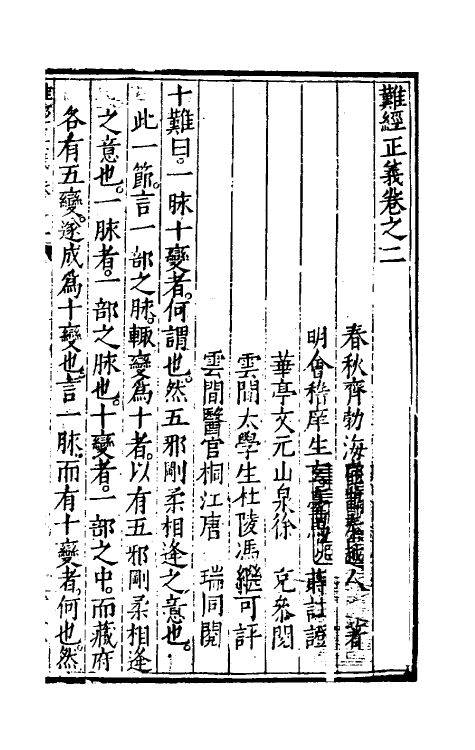 難經正義卷之二
春秋齊勃海 人 著
明會稽庠生 蔣註證
華亭文元山泉徐 克參閱
雲間太學生杜陵馮繼可評
雲間醫官桐江唐 瑞同閱
十難曰。一脉十變者。何謂也。然五邪剛柔相逢之意也。
此一節。言一部之脉。輒變爲十者。以有五邪剛柔相逢
之意也。一脉者。一部之脉也。十變者。一部之中。而藏府
各有五變。遂成爲十變也。言一脉。而有十變者。何也。然